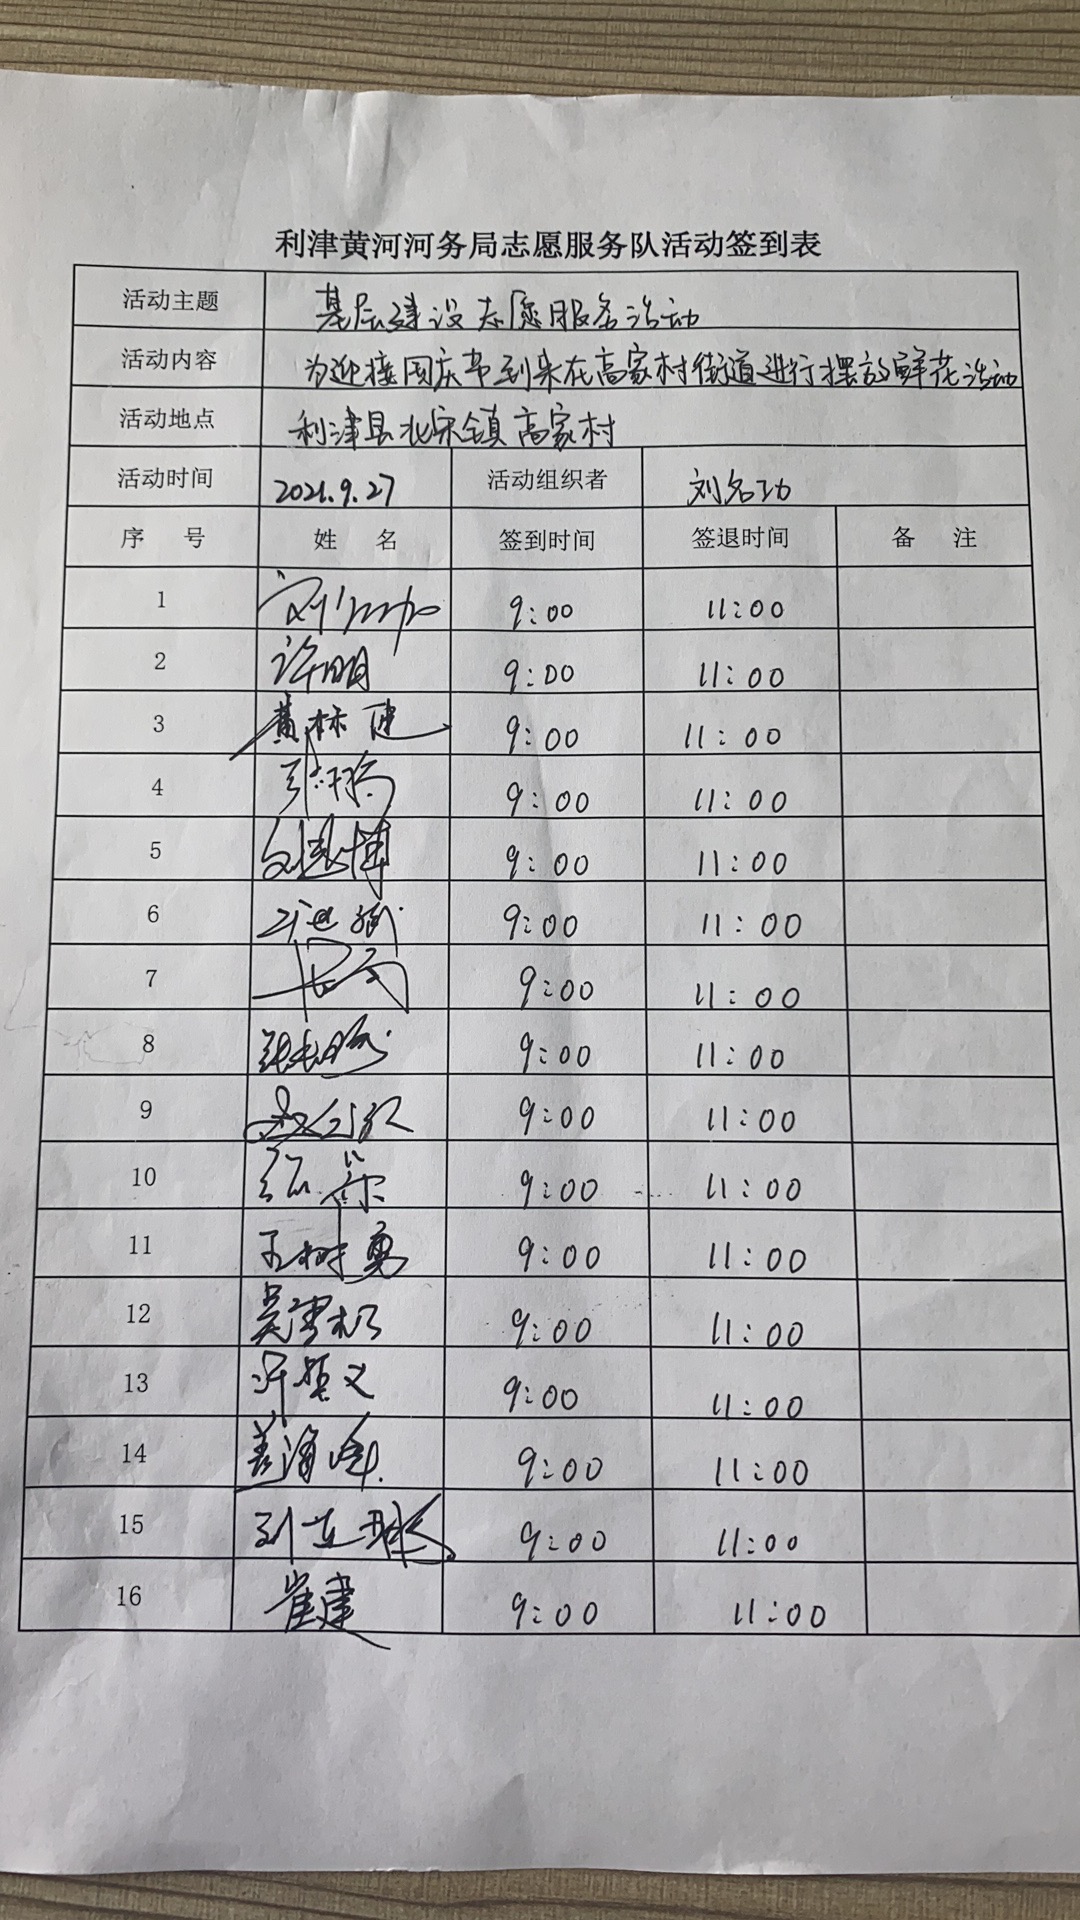 利津黄河河务局志愿服务队活动签到表
活动主题 基层建设志愿服务活动
活动内容 为迎接国庆节到来在高家村街道进行摆放鲜花活动
活动地点 利津县北宋镇高家村
活动时间 2021.9.27 活动组织者 刘名功
序 号 姓 名 签到时间 签退时间 备 注
1 9:00 11:00
2 许明 9:00 11:00
3 黄林健 9:00 11:00
4 9:00 11:00
5 9:00 11:00
6 9:00 11:00
7 9:00 11:00
8 9:00 11:00
9 9:00 11:00
10 9:00 11:00
11 王树勇 9:00 11:00
12 9:00 11:00
13 9:00 11:00
14 9:00 11:00
15 9:00 11:00
16 崔建 9:00 11:00